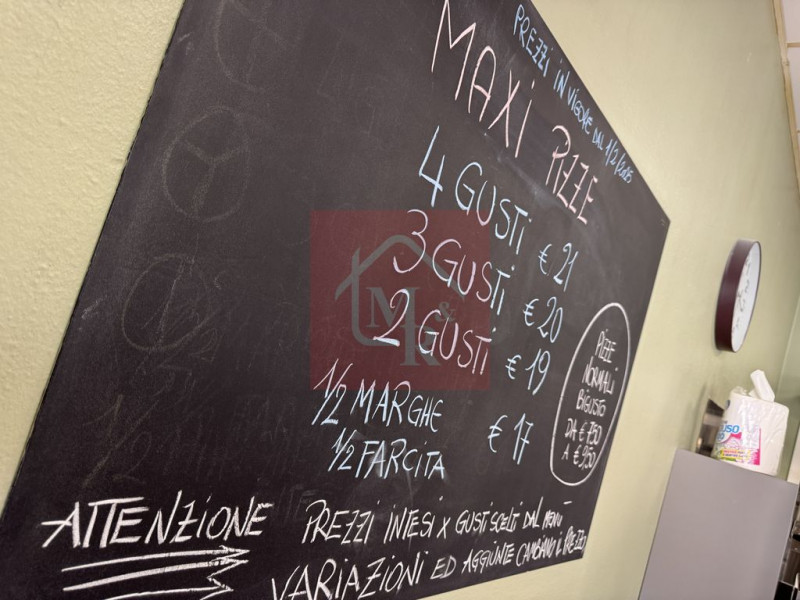 PREZZI IN VIGORE DAL 1/2/2025
MAXI PIZZE
4 GUSTI € 21
3 GUSTI € 20
2 GUSTI € 19
1/2 MARGHE
1/2 FARCITA € 17
PIZZE
NORMALI
BIGUSTO
DA € 7,50
A € 9,50
ATTENZIONE PREZZI INTESI X GUSTI SCELTI DAL MENÙ
VARIAZIONI ED AGGIUNTE CAMBIANO IL PREZZO
M&R